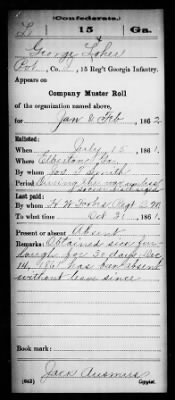 (Confederate.)
15 Ga.
George
Pvt., Co. , 15 Reg't Georgia Infantry.
Appears on
Company Muster Roll
of the organization named above,
for Jan & Feb, 1862.
Enlisted:
When July 15, 1861.
Where Elberton, Ga.
By whom Jos. T. Smith
Period During the war unless
Last paid:
By whom H. W. Forbs Regt Q.M.
To what time Oct 31, 1861.
Present or absent Absent
Remarks: Obtained sick fur-
lough for 30 days Dec
14, 1861 has been absent
without leave since
Book mark:
Jack Ausmus
(642) Copyist.